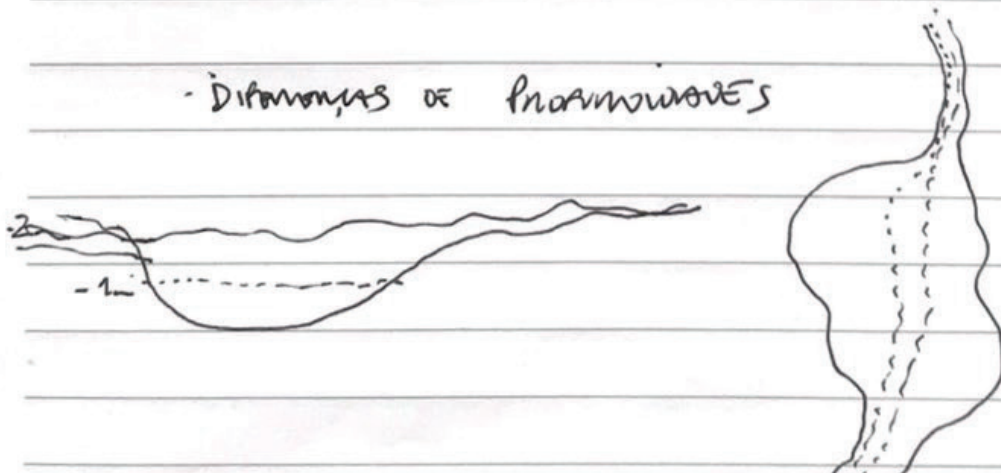 - DIFERENÇAS DE PROFUNDIDADES
-2
-1m